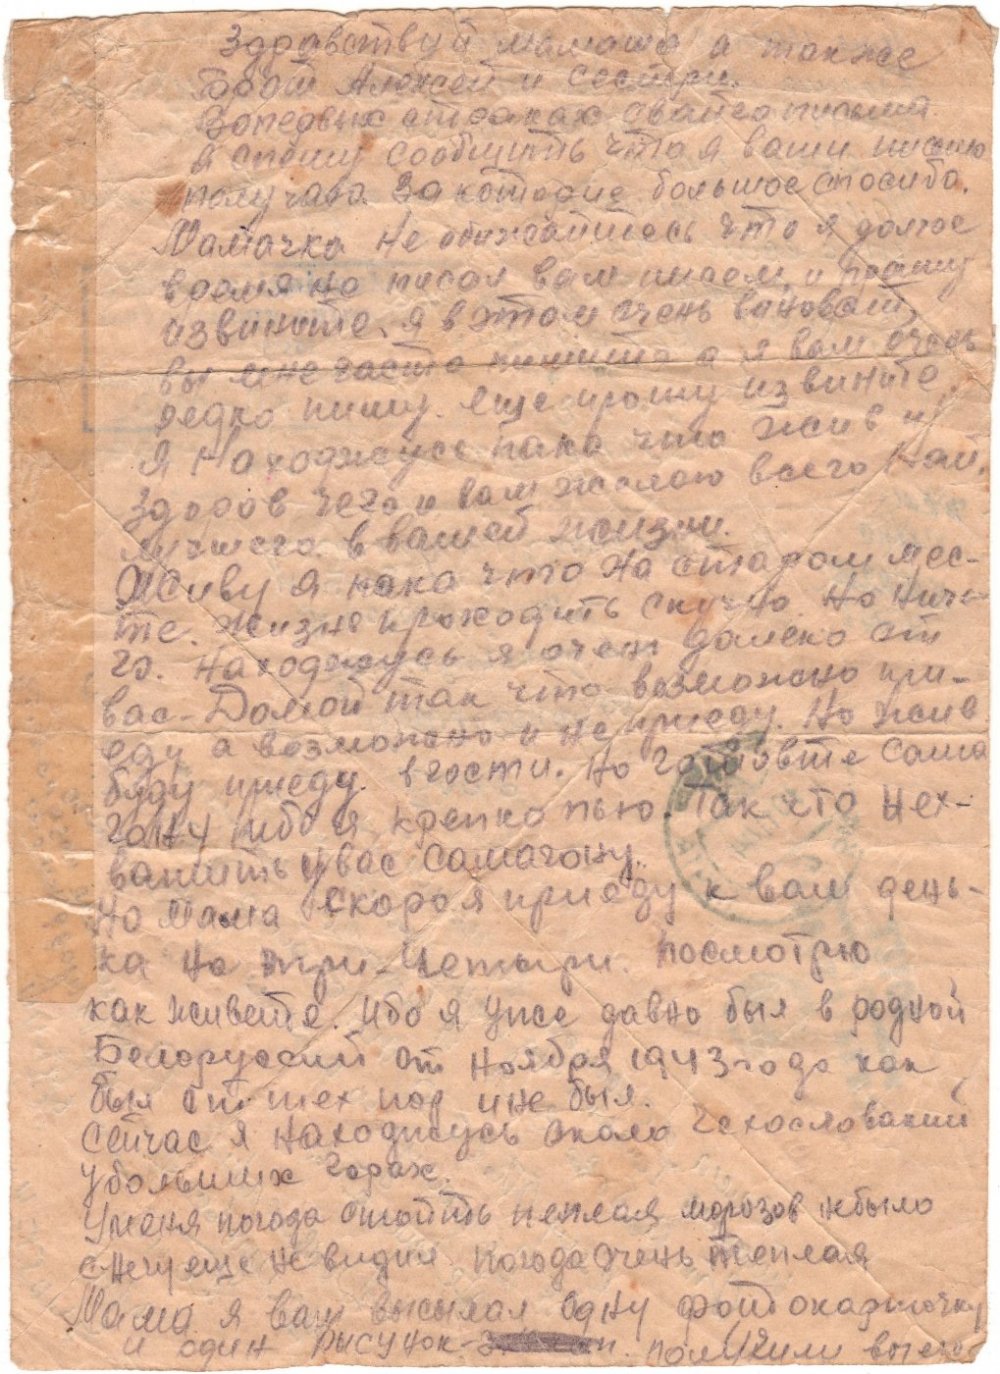 Здравствуй мамаша а также
брат Алексей и сестры.
Вопервых строках свайго письма
я спешу сообщить что я ваши письмо
получаю за которые большое спосибо.
Мамачка не обижайтесь что я долгое
время не писал вам писем, и прошу
извините. я в этом очень виноват,
вы мне часто пишите а я вам очень
редко пишу. еще прошу извините.
Я находжусе пака что жив и
здоров чего и вам желаю всего най-
лучшего в вашей жизни.
Живу я пака что на старом мес-
те. Жизнь проходить скучно. Но ниче-
го. Находжусь я очень далеко от
вас. Домой так что возможно при-
еду а возможно и не приеду. Но жив
буду приеду в гости. Но готовте сама
гону ибо я крепко пью. Так что нех-
ватить у вас самагону.
Но мама скора я приеду к вам день-
ка на три-четыри. посмотрю
как живете. Ибо я уже давно был в родной
Белоруссии от ноября 1943 года как
был от тех пор и не был.
Сейчас я находжусь около Чехословакии
у больших горах.
У меня погода стоить теплая морозов небыло
снегу еще не видил погода очень теплая
Мама я ваш высылал одну фотокарточку
и один рисунок. получили вы его